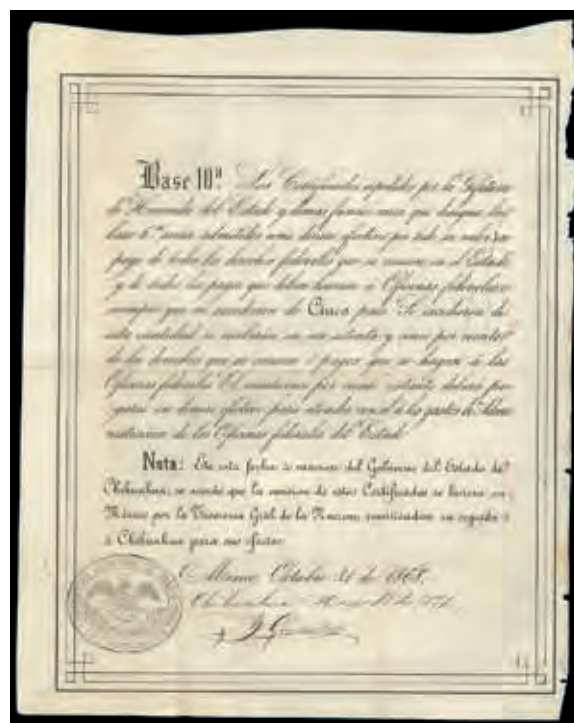 Base 10ª. Los Certificados espedidos por la Gefatura
de Hacienda del Estado y demas funcionarios que designa la
base 6ª seran admitidos como dinero efectivo por todo su valor en
pago de todos los derechos federales que se causen en el Estado
y de todos los pagos que deban hacerse á Oficinas federales
siempre que no escedieren de Cinco pesos. Si escedieren de
esta cantidad se recibirán en un setenta y cinco por ciento
de los derechos que se causen ó pagos que se hagan á las
Oficinas federales. El veinticinco por ciento restante deberá pa-
garse en dinero efectivo para atender con él á los gastos de Admi-
nistracion de las Oficinas federales del Estado.
Nota: En esta fecha á mocion del Gobierno del Estado de
Chihuahua, se acordó que la emision de estos Certificados se hiciera en
México por la Tesoreria Gral de la Nacion, remitiendose en seguida
á Chihuahua para sus efectos.
México, Octubre 21 de 1868.
Chihuahua